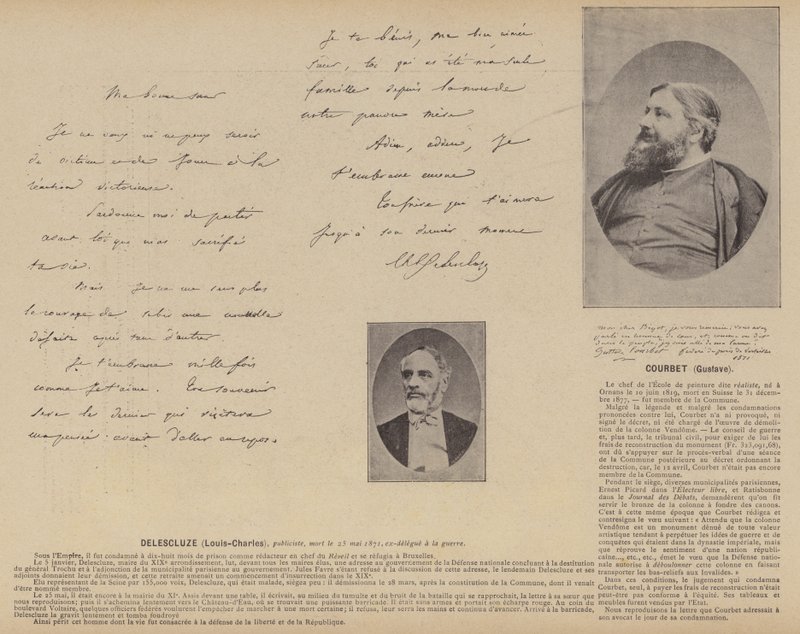 Ma bonne sœur
Je ne veux ni ne peux servir
de victime et de jouet à la
réaction victorieuse.
Pardonne moi de partir
avant toi qui m'as sacrifié
ta vie.
Mais je ne me sens plus
le courage de subir une nouvelle
défaite après tant d'autres
Je t'embrasse mille fois
comme je t'aime. Ton souvenir
sera le dernier qui visitera
ma pensée avant d'aller au repos.
Je te bénis, ma bien aimée
sœur, toi qui as été ma seule
famille depuis la mort de
notre pauvre mère
Adieu, adieu, Je
t'embrasse encore
Ton frère qui t'aimera
jusqu'à son dernier moment
Ch. Delescluze
DELESCLUZE (Louis-Charles), publiciste, mort le 25 mai 1871, ex-délégué à la guerre.
Sous l'Empire, il fut condamné à dix-huit mois de prison comme rédacteur en chef du Réveil et se réfugia à Bruxelles.
Le 5 janvier, Delescluze, maire du XIXe arrondissement, lut, devant tous les maires élus, une adresse au gouvernement de la Défense nationale concluant à la destitution
du général Trochu et à l'adjonction de la municipalité parisienne au gouvernement. Jules Favre s'étant refusé à la discussion de cette adresse, le lendemain Delescluze et ses
adjoints donnaient leur démission, et cette retraite amenait un commencement d'insurrection dans le XIXe.
Elu représentant de la Seine par 155,000 voix, Delescluze, qui était malade, siégea peu : il démissionna le 28 mars, après la constitution de la Commune, dont il venait
d'être nommé membre.
Le 25 mai, il était encore à la mairie du XIe. Assis devant une table, il écrivait, au milieu du tumulte et du bruit de la bataille qui se rapprochait, la lettre à sa sœur que
nous reproduisons; puis il s'achemina lentement vers le Château-d'Eau, où se trouvait une puissante barricade. Il était sans armes et portait son écharpe rouge. Au coin du
boulevard Voltaire, quelques officiers fédérés voulurent l'empêcher de marcher à une mort certaine; il refusa, leur serra les mains et continua d'avancer. Arrivé à la barricade,
Delescluze la gravit lentement et tomba foudroyé
Ainsi périt cet homme dont la vie fut consacrée à la défense de la liberté et de la République.
Mon cher Bigot, je vous remercie; vous avez
parlé en homme de cœur, et comme
Gustave Courbet
1871
COURBET (Gustave).
Le chef de l'École de peinture dite réaliste, né à
Ornans le 10 juin 1819, mort en Suisse le 31 décem-
bre 1877, — fut membre de la Commune.
Malgré la légende et malgré les condamnations
prononcées contre lui, Courbet n'a ni provoqué, ni
signé le décret, ni été chargé de l'œuvre de démoli-
tion de la colonne Vendôme. — Le conseil de guerre
et, plus tard, le tribunal civil, pour exiger de lui les
frais de reconstruction du monument (Fr. 323,091,68),
ont dû s'appuyer sur le procès-verbal d'une séance
de la Commune postérieure au décret ordonnant la
destruction, car, le 12 avril, Courbet n'était pas encore
membre de la Commune.
Pendant le siège, diverses municipalités parisiennes,
Ernest Picard dans l'Électeur libre, et Ratisbonne
dans le Journal des Débats, demandèrent qu'on fît
servir le bronze de la colonne à fondre des canons.
C'est à cette même époque que Courbet rédigea et
contresigna le vœu suivant : « Attendu que la colonne
Vendôme est un monument dénué de toute valeur
artistique tendant à perpétuer les idées de guerre et de
conquêtes qui étaient dans la dynastie impériale, mais
que réprouve le sentiment d'une nation républi-
caine..., etc., etc., émet le vœu que la Défense natio-
nale autorise à déboulonner cette colonne en faisant
transporter les bas-reliefs aux Invalides. »
Dans ces conditions, le jugement qui condamna
Courbet, seul, à payer les frais de reconstruction n'était
peut-être pas conforme à l'équité. Ses tableaux et
meubles furent vendus par l'Etat.
Nous reproduisons la lettre que Courbet adressait à
son avocat le jour de sa condamnation.